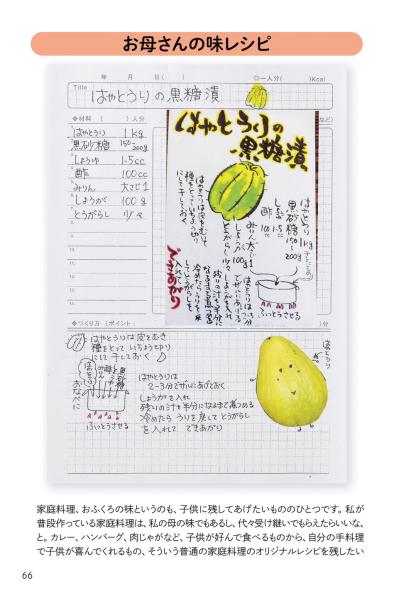 お母さんの味レシピ
年 月 日（ ） ◎一人分（ ）Kcal
Title はやとうりの黒糖漬
◆材料（ ）人分
はやとうり 1kg
黒砂糖 150~200g
しょうゆ 1.5cc
酢 100cc
みりん 大サジ1
しょうが 100g
とうがらし 少々
はやとうりの
黒糖漬
はやとうりは皮をむいて
種をとっていちょう切り
にして干しておく
はやとうり 1kg
黒砂糖 150~200g
しょうゆ 1.5cc
酢 100cc
みりん 大サジ1
しょうが 100g
とうがらし 少々
ふっとうさせる
できあがり
◆つくり方（ポイント： ）分
はやとうりは皮をむき
種をとって いちょう切り
にして干しておく♪
はやとうり
黒砂糖
おなべに
ふっとうさせる
はやとうりは
2~3分でザルにあげておく
しょうがを入れ
残りの汁を半分になるまで煮つめる
冷めたら うりを戻して とうがらし
を入れて できあがり
はやとうり
家庭料理、おふくろの味というのも、子供に残してあげたいもののひとつです。私が
普段作っている家庭料理は、私の母の味でもあるし、代々受け継いでもらえたらいいな、
と。カレー、ハンバーグ、肉じゃがなど、子供が好んで食べるものから、自分の手料理
で子供が喜んでくれるもの、そういう普通の家庭料理のオリジナルレシピを残したい
66